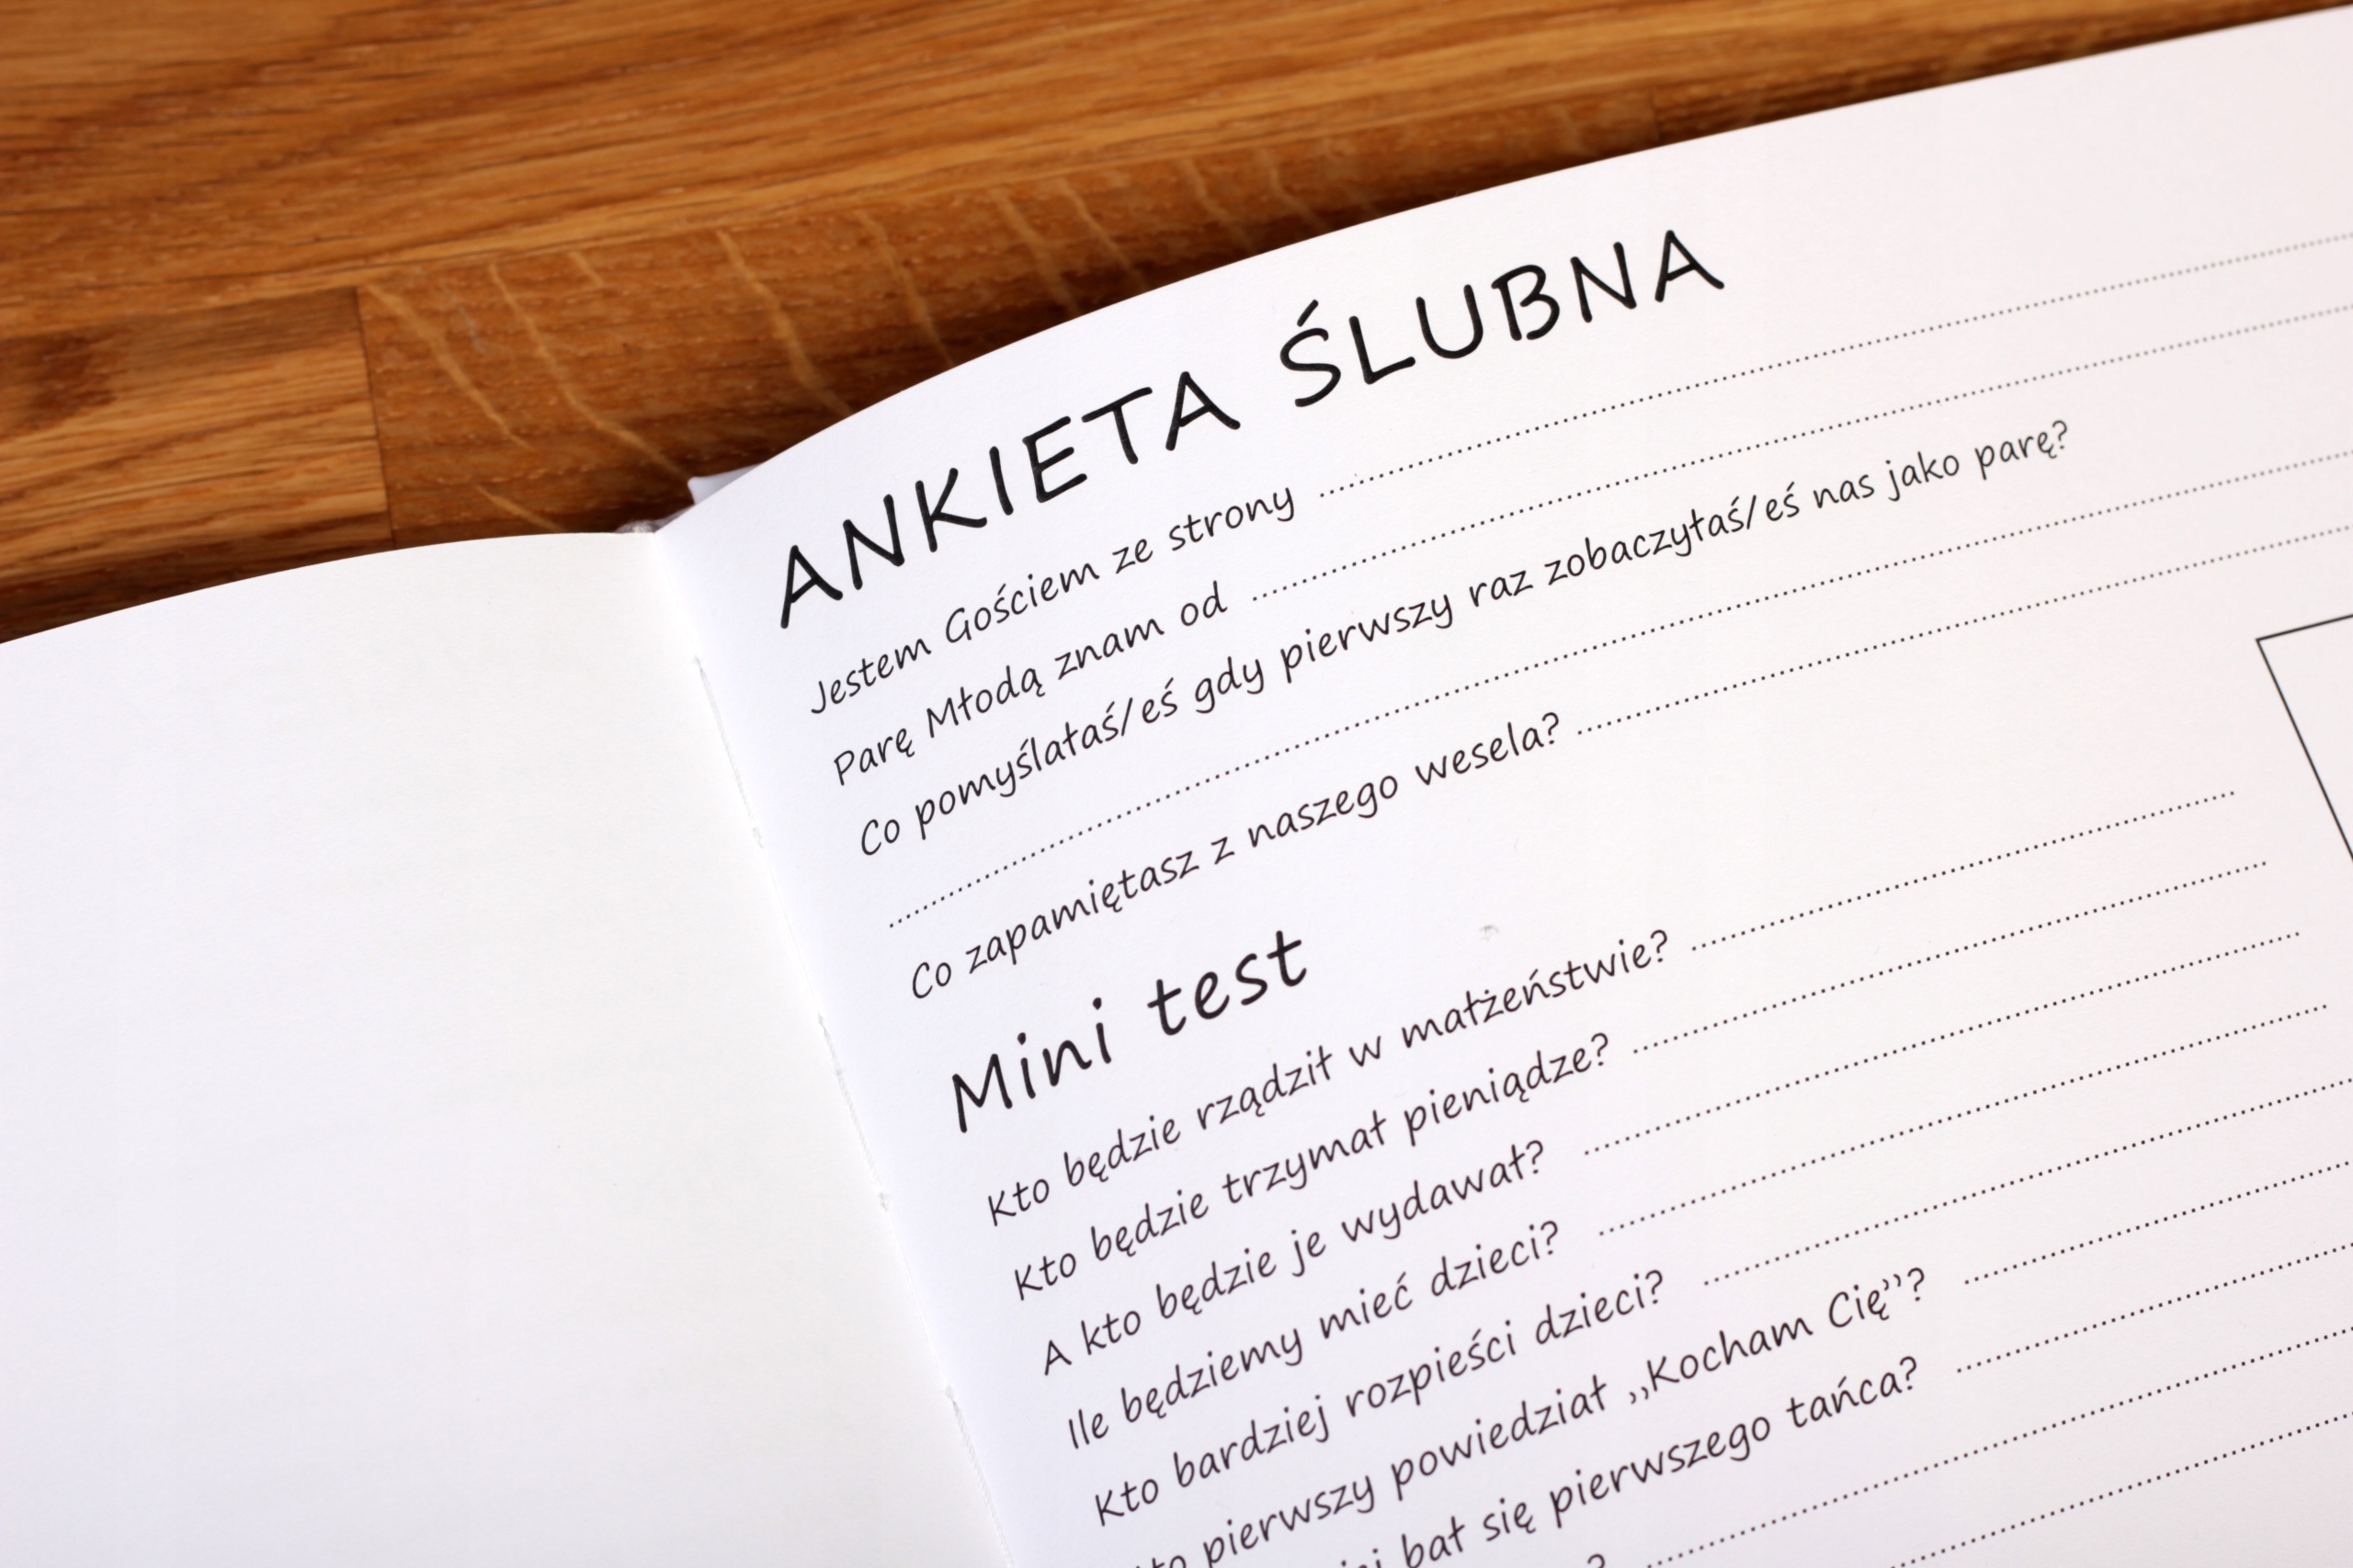 ANKIETA ŚLUBNA
Jestem Gościem ze strony
Parę Młodą znam od
Co pomyślałaś/eś gdy pierwszy raz zobaczyłaś/eś nas jako parę?
Co zapamiętasz z naszego wesela?
Mini test
Kto będzie rządził w małżeństwie?
Kto będzie trzymał pieniądze?
A kto będzie je wydawał?
Ile będziemy mieć dzieci?
Kto bardziej rozpieści dzieci?
pierwszy powiedział ,,Kocham Cię”?
bał się pierwszego tańca?